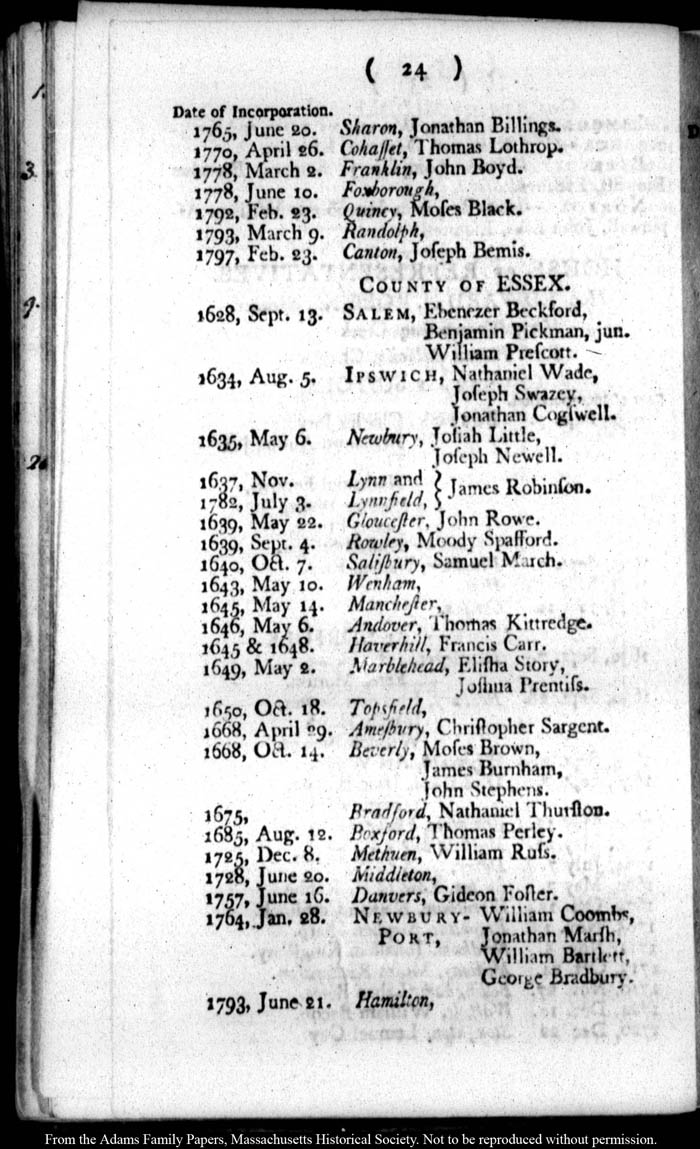 ( 24 )
Date of Incorporation.
1765, June 20. Sharon, Jonathan Billings.
1770, April 26. Cohaſſet, Thomas Lothrop.
1778, March 2. Franklin, John Boyd.
1778, June 10. Foxborough,
1792, Feb. 23. Quincy, Moſes Black.
1793, March 9. Randolph,
1797, Feb. 23. Canton, Joſeph Bemis.
COUNTY OF ESSEX.
1628, Sept. 13. SALEM, Ebenezer Beckford,
Benjamin Pickman, jun.
William Preſcott.
1634, Aug. 5. IPSWICH, Nathaniel Wade,
Joſeph Swazey,
Jonathan Cogſwell.
1635, May 6. Newbury, Joſiah Little,
Joſeph Newell.
1637, Nov. Lynn and } James Robinſon.
1782, July 3. Lynnfield, }
1639, May 22. Glouceſter, John Rowe.
1639, Sept. 4. Rowley, Moody Spafford.
1640, Oct. 7. Saliſbury, Samuel March.
1643, May 10. Wenham,
1645, May 14. Mancheſter,
1646, May 6. Andover, Thomas Kittredge.
1645 & 1648. Haverhill, Francis Carr.
1649, May 2. Marblehead, Eliſha Story,
Joſhua Prentiſs.
1650, Oct. 18. Topsfield,
1668, April 29. Ameſbury, Chriſtopher Sargent.
1668, Oct. 14. Beverly, Moſes Brown,
James Burnham,
John Stephens.
1675, Bradford, Nathaniel Thurſton.
1685, Aug. 12. Boxford, Thomas Perley.
1725, Dec. 8. Methuen, William Ruſs.
1728, June 20. Middleton,
1757, June 16. Danvers, Gideon Foſter.
1764, Jan. 28. NEWBURY- William Coombs,
PORT, Jonathan Marſh,
William Bartlett,
George Bradbury.
1793, June 21. Hamilton,
From the Adams Family Papers, Massachusetts Historical Society. Not to be reproduced without permission.